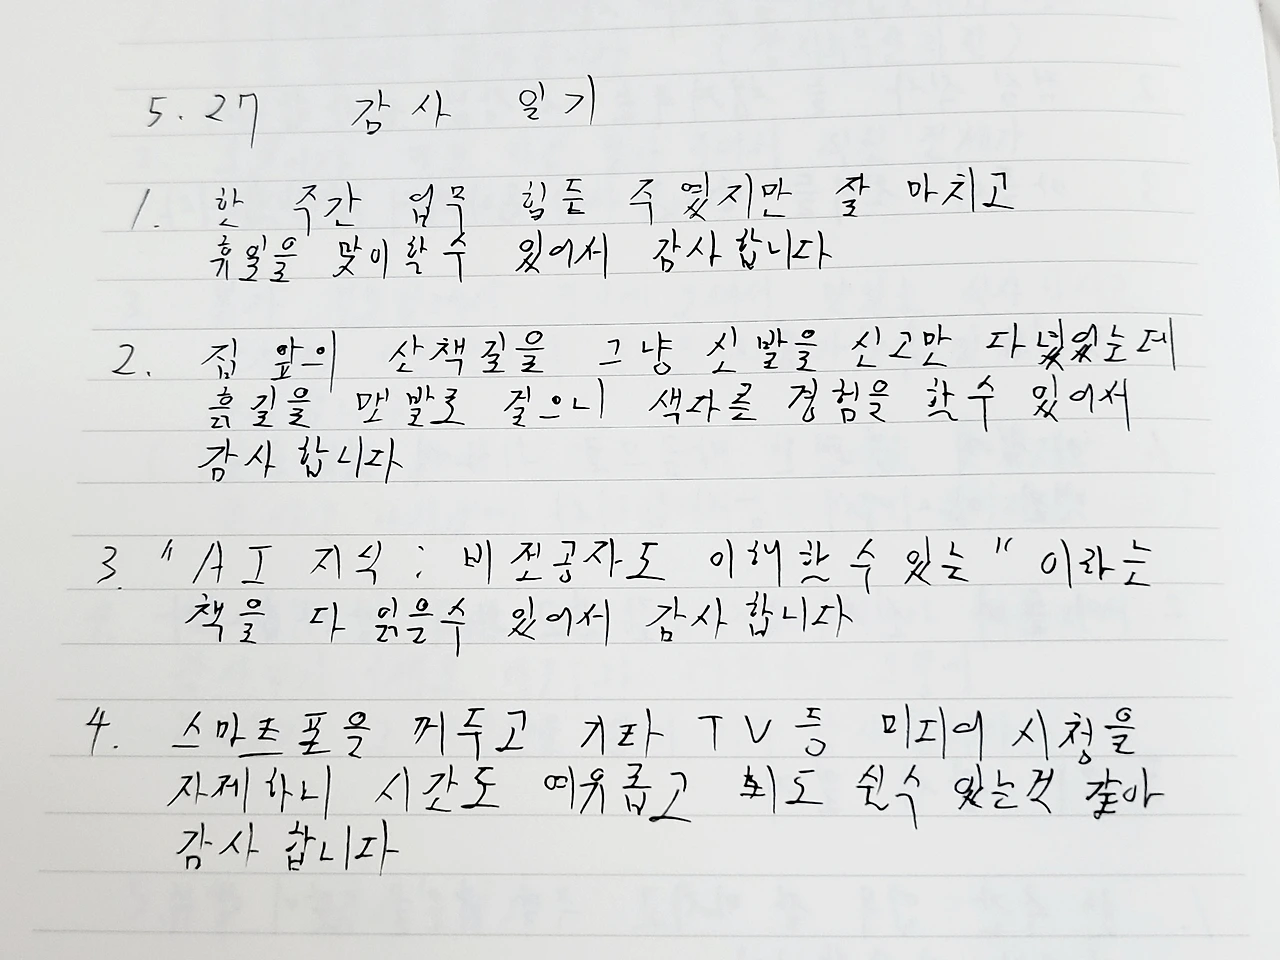 5. 27 감사 일기
1. 한 주간 업무 힘든 주였지만 잘 마치고
휴일을 맞이할수 있어서 감사합니다
2. 집 앞의 산책길을 그냥 신발을 신고만 다녔었는데
흙길을 맨발로 걸으니 색다른 경험을 할수 있어서
감사합니다
3. "AI 지식 : 비전공자도 이해할 수 있는" 이라는
책을 다 읽을수 있어서 감사합니다
4. 스마트폰을 꺼두고 기타 TV 등 미디어 시청을
자제하니 시간도 여유롭고 뇌도 쉴수 있는것 같아
감사합니다